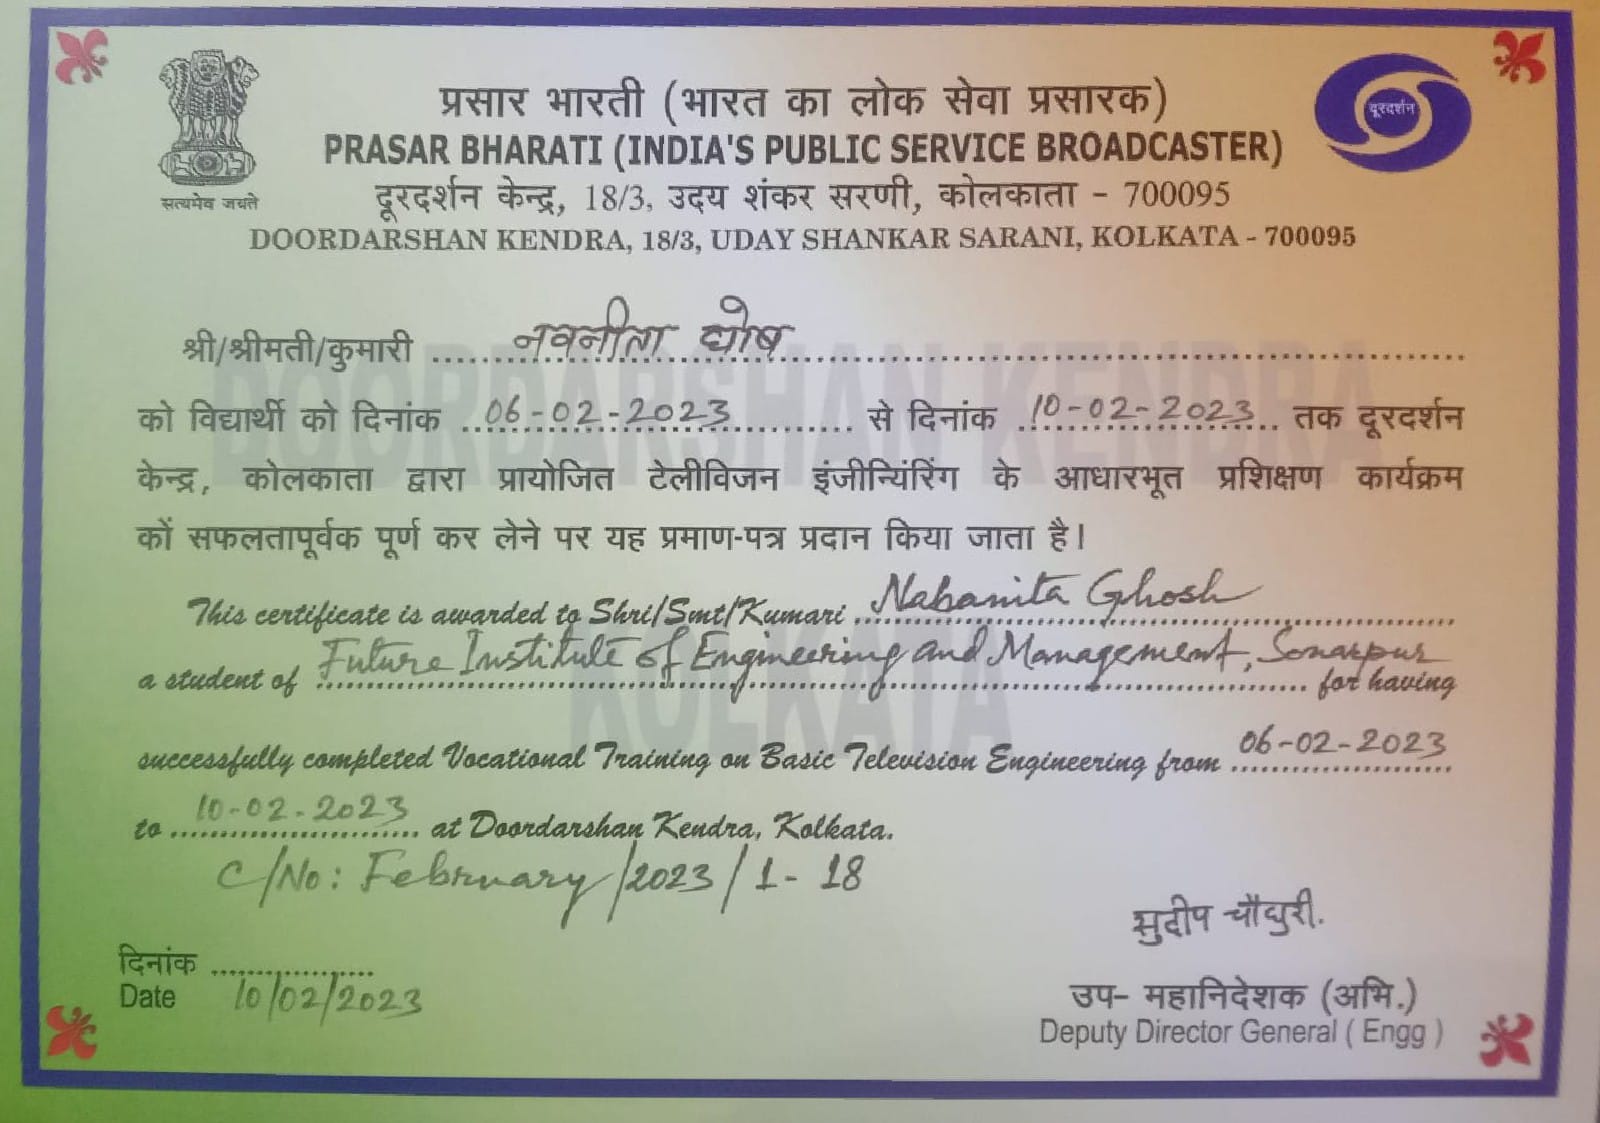 सत्यमेव जयते
दूरदर्शन
प्रसार भारती (भारत का लोक सेवा प्रसारक)
PRASAR BHARATI (INDIA'S PUBLIC SERVICE BROADCASTER)
दूरदर्शन केन्द्र, 18/3, उदय शंकर सरणी, कोलकाता - 700095
DOORDARSHAN KENDRA, 18/3, UDAY SHANKAR SARANI, KOLKATA - 700095
DOORDARSHAN KENDRA
KOLKATA
श्री/श्रीमती/कुमारी नवनीता घोष
को विद्यार्थी को दिनांक 06-02-2023 से दिनांक 10-02-2023 तक दूरदर्शन
केन्द्र, कोलकाता द्वारा प्रायोजित टेलीविजन इंजीन्यिंरिंग के आधारभूत प्रशिक्षण कार्यक्रम
कों सफलतापूर्वक पूर्ण कर लेने पर यह प्रमाण-पत्र प्रदान किया जाता है।
This certificate is awarded to Shri/Smt/Kumari Nabanita Ghosh
a student of Future Institute of Engineering and Management, Sonarpur for having
successfully completed Vocational Training on Basic Television Engineering from 06-02-2023
to 10-02-2023 at Doordarshan Kendra, Kolkata.
C/No: February/2023/1-18
सुदीप चौधुरी.
दिनांक
Date 10/02/2023
उप- महानिदेशक (अभि.)
Deputy Director General ( Engg )